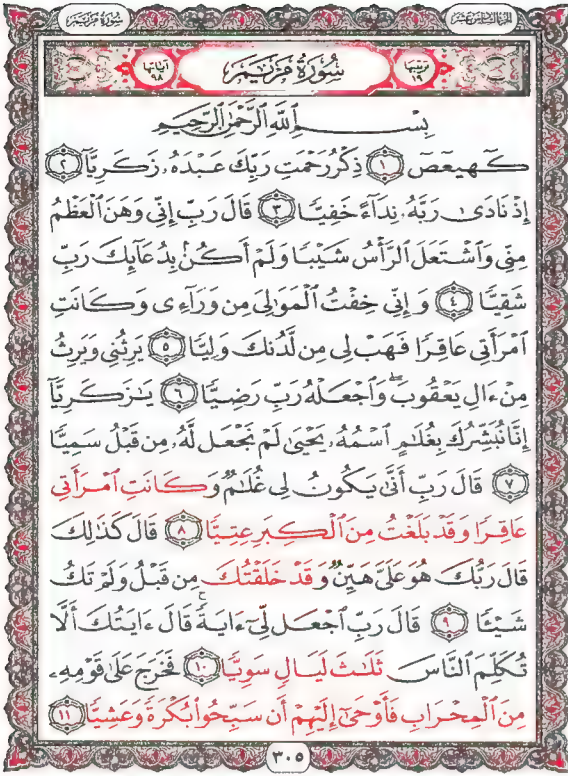 الجزء السادس عشر
سُورَةُ مَرْيَم
ترتيبها ١٩
سُورَةُ مَرْيَمَ
آياتها ٩٨
بِسْمِ ٱللَّهِ ٱلرَّحْمَٰنِ ٱلرَّحِيمِ
كٓهيعٓصٓ ١ ذِكْرُ رَحْمَتِ رَبِّكَ عَبْدَهُۥ زَكَرِيَّآ ٢
إِذْ نَادَىٰ رَبَّهُۥ نِدَآءً خَفِيًّا ٣ قَالَ رَبِّ إِنِّى وَهَنَ ٱلْعَظْمُ
مِنِّى وَٱشْتَعَلَ ٱلرَّأْسُ شَيْبًا وَلَمْ أَكُنۢ بِدُعَآئِكَ رَبِّ
شَقِيًّا ٤ وَإِنِّى خِفْتُ ٱلْمَوَٰلِىَ مِن وَرَآءِى وَكَانَتِ
ٱمْرَأَتِى عَاقِرًا فَهَبْ لِى مِن لَّدُنكَ وَلِيًّا ٥ يَرِثُنِى وَيَرِثُ
مِنْ ءَالِ يَعْقُوبَ ۖ وَٱجْعَلْهُ رَبِّ رَضِيًّا ٦ يَٰزَكَرِيَّآ
إِنَّا نُبَشِّرُكَ بِغُلَٰمٍ ٱسْمُهُۥ يَحْيَىٰ لَمْ نَجْعَل لَّهُۥ مِن قَبْلُ سَمِيًّا
٧ قَالَ رَبِّ أَنَّىٰ يَكُونُ لِى غُلَٰمٌ وَكَانَتِ ٱمْرَأَتِى
عَاقِرًا وَقَدْ بَلَغْتُ مِنَ ٱلْكِبَرِ عِتِيًّا ٨ قَالَ كَذَٰلِكَ
قَالَ رَبُّكَ هُوَ عَلَىَّ هَيِّنٌ وَقَدْ خَلَقْتُكَ مِن قَبْلُ وَلَمْ تَكُ
شَيْـًٔا ٩ قَالَ رَبِّ ٱجْعَل لِّىٓ ءَايَةً ۚ قَالَ ءَايَتُكَ أَلَّا
تُكَلِّمَ ٱلنَّاسَ ثَلَٰثَ لَيَالٍ سَوِيًّا ١٠ فَخَرَجَ عَلَىٰ قَوْمِهِۦ
مِنَ ٱلْمِحْرَابِ فَأَوْحَىٰٓ إِلَيْهِمْ أَن سَبِّحُوا۟ بُكْرَةً وَعَشِيًّا ١١
٣٠٥